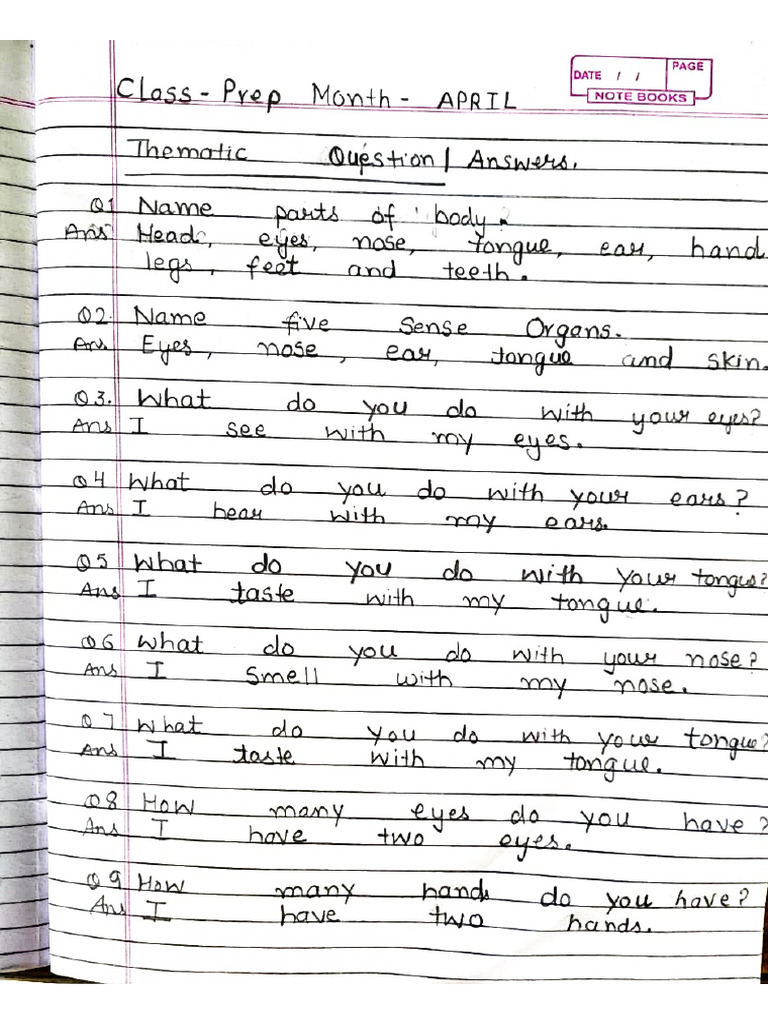 DATE / / PAGE
NOTE BOOKS
Class - Prep Month - APRIL
Thematic Question / Answers.
Q1 Name parts of body?
Ans Head, eyes, nose, tongue, ear, hand
legs, feet and teeth.
Q2. Name five Sense Organs.
Ans Eyes, nose, ear, tongue and skin.
Q3. What do you do with your eyes?
Ans I see with my eyes.
Q4 What do you do with your ears?
Ans I hear with my ears.
Q5 What do you do with your tongue?
Ans I taste with my tongue.
Q6 What do you do with your nose?
Ans I smell with my nose.
Q7 What do you do with your tongue?
Ans I taste with my tongue.
Q8 How many eyes do you have?
Ans I have two eyes.
Q9 How many hands do you have?
Ans I have two hands.